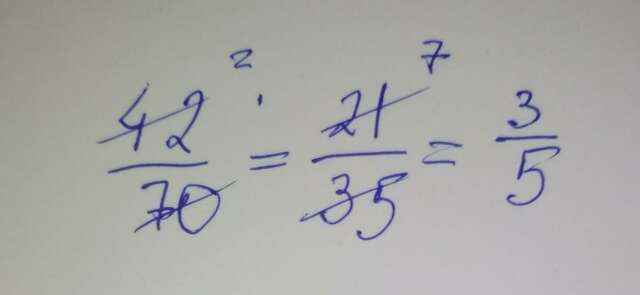 42/70 ² = 21/35 ⁷ = 3/5